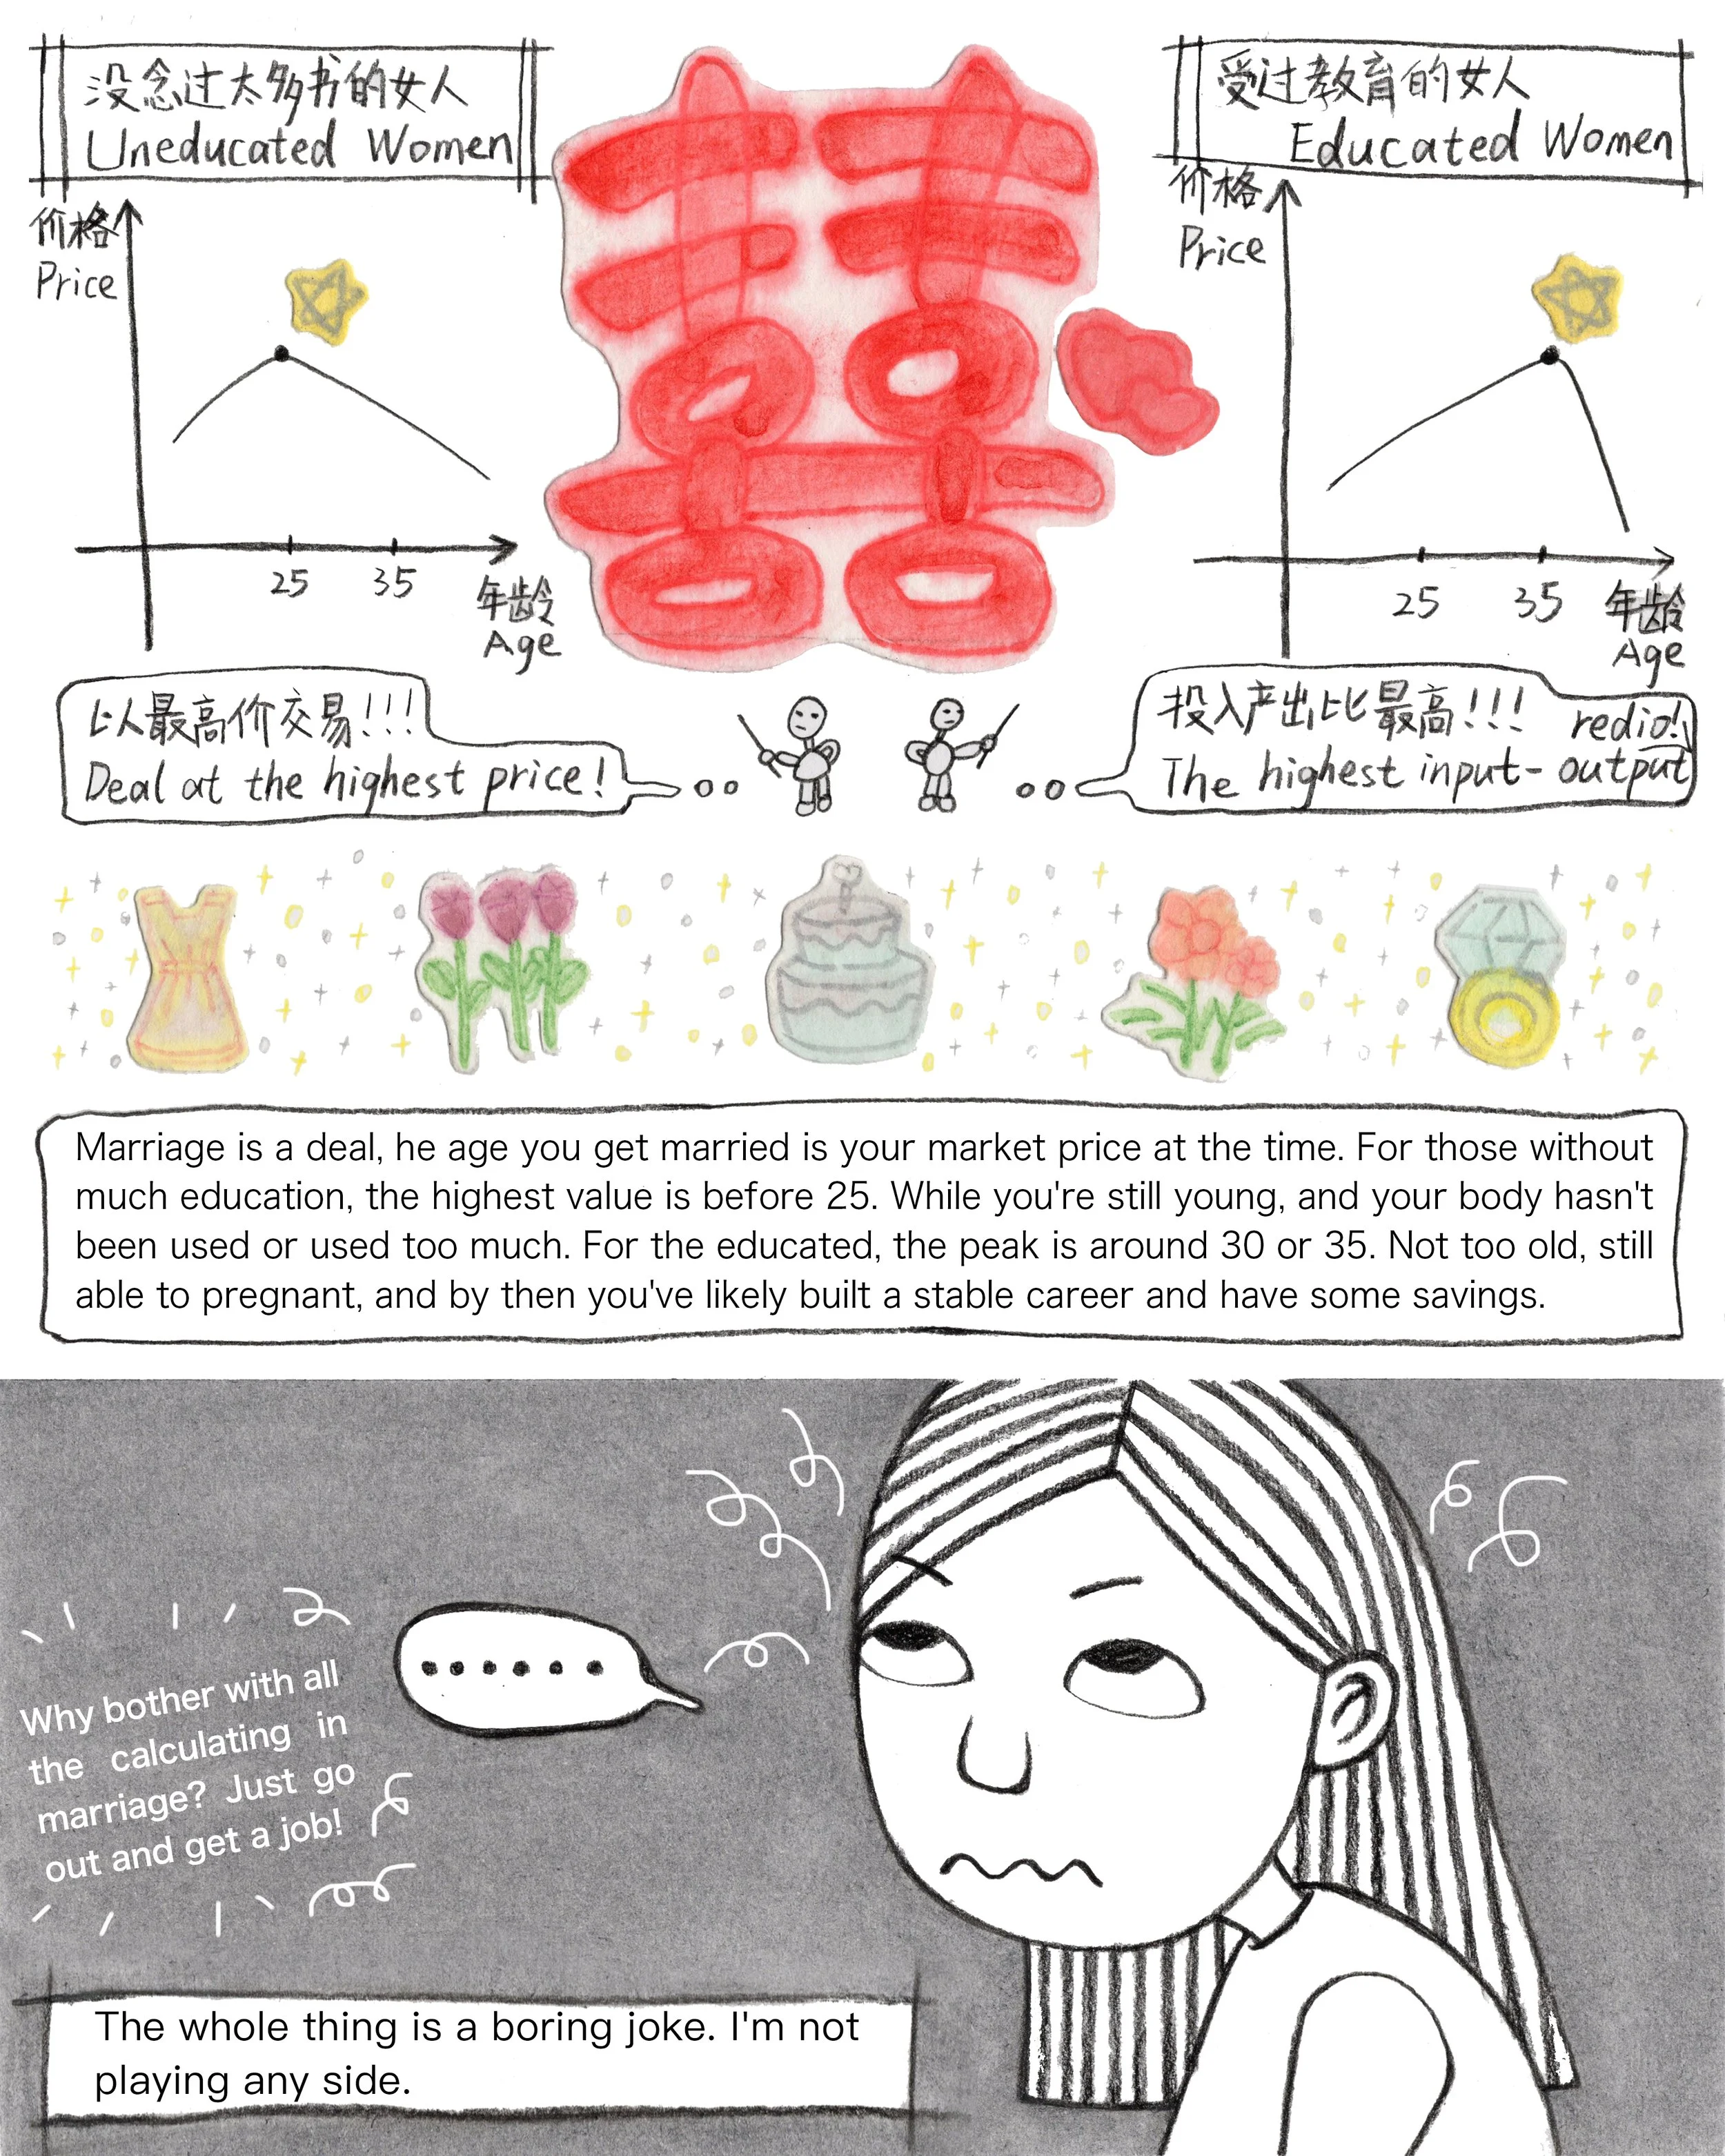 没念过太多书的女人
Uneducated Women
价格
Price
25
35
年龄
Age
囍
受过教育的女人
Educated Women
价格
Price
25
35
年龄
Age
以最高价交易!!!
Deal at the highest price!
投入产出比最高!!!
The highest input-output redio!
Marriage is a deal, he age you get married is your market price at the time. For those without
much education, the highest value is before 25. While you're still young, and your body hasn't
been used or used too much. For the educated, the peak is around 30 or 35. Not too old, still
able to pregnant, and by then you've likely built a stable career and have some savings.
......
Why bother with all
the calculating in
marriage? Just go
out and get a job!
The whole thing is a boring joke. I'm not
playing any side.